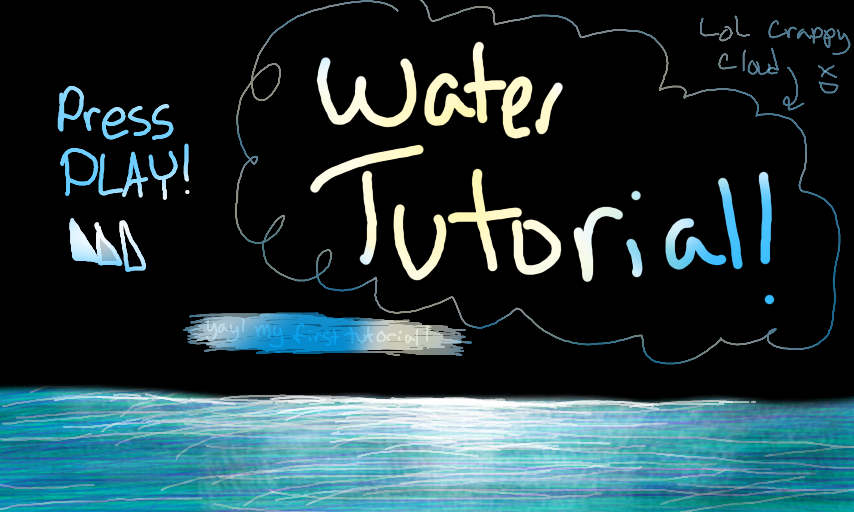 LoL Crappy
Cloud XD
Water
Tutorial!
Press
PLAY!
yay! my first tutorial!